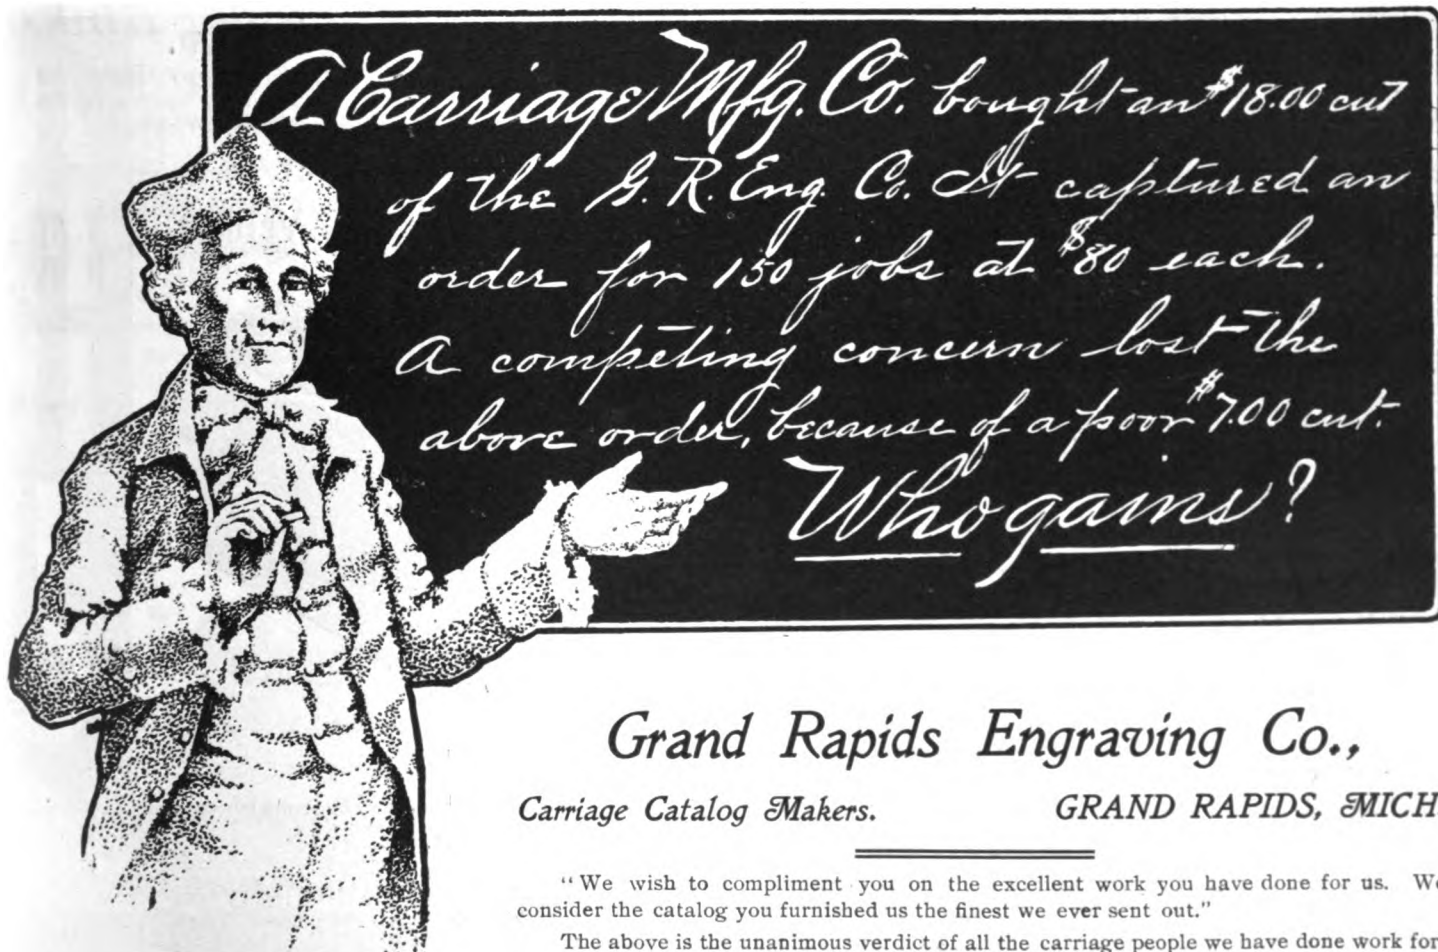 A Carriage Mfg. Co. bought an $18.00 cut
of the G. R. Eng. Co. It captured an
order for 150 jobs at $80 each.
A competing concern lost the
above order, because of a poor $7.00 cut.
Who gains?
Grand Rapids Engraving Co.,
Carriage Catalog Makers. GRAND RAPIDS, MICH.
“We wish to compliment you on the excellent work you have done for us. We
consider the catalog you furnished us the finest we ever sent out.”
The above is the unanimous verdict of all the carriage people we have done work for.